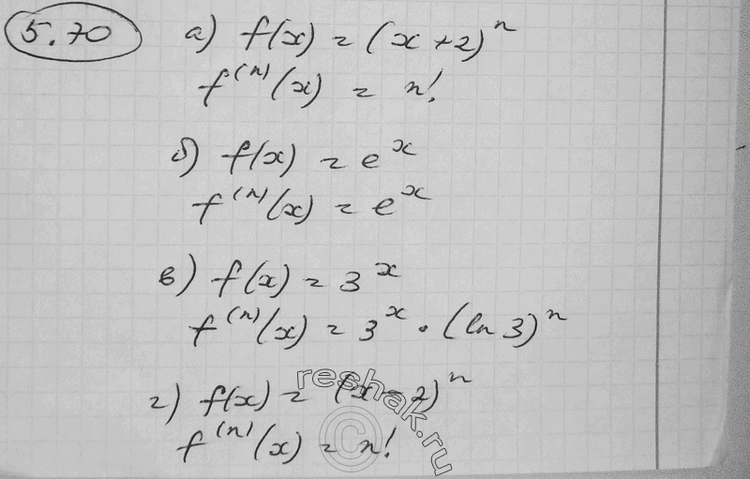 5.70
а) f(x) = (x+2)^n
f^(n)(x) = n!
б) f(x) = e^x
f^(n)(x) = e^x
в) f(x) = 3^x
f^(n)(x) = 3^x · (ln 3)^n
г) f(x) = (x-2)^n
f^(n)(x) = n!
reshak.ru
©